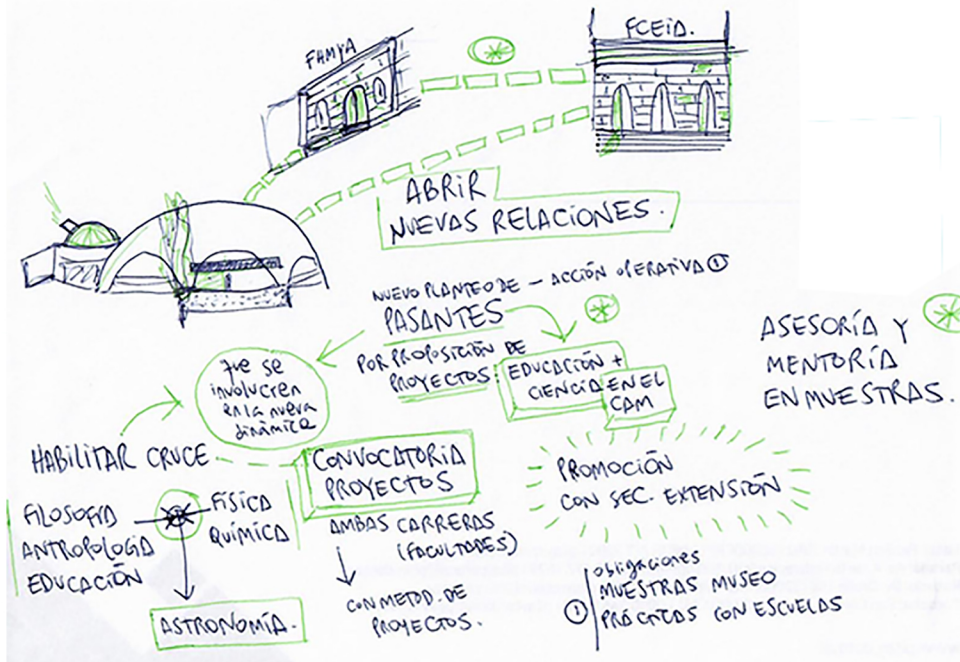 FHMYA
FCEIA.
ABRIR
NUEVAS RELACIONES.
NUEVO PLANTEO DE — ACCIÓN OPERATIVA ①
PASANTES
POR PROPOSICIÓN DE
PROYECTOS:
EDUCACIÓN +
CIENCIA EN EL
CAM
ASESORÍA Y
MENTORÍA
EN MUESTRAS.
que se
involucren
en la nueva
dinámica
HABILITAR CRUCE
FILOSOFIA
ANTROPOLOGIA
EDUCACIÓN
FÍSICA
QUÍMICA
ASTRONOMÍA.
CONVOCATORIA
PROYECTOS
AMBAS CARRERAS
(FACULTADES)
CON METOD. DE
PROYECTOS.
PROMOCIÓN
CON SEC. EXTENSIÓN
① obligaciones
MUESTRAS MUSEO
PRÁCTICAS CON ESCUELAS